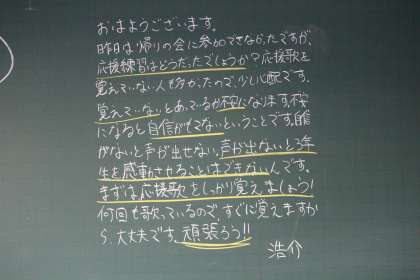 おはようございます。
昨日は帰りの会に参加できなかったですが、
応援練習はどうだったでしょうか？応援歌を
覚えていない人も多かったので、少し心配です。
覚えていないとあっているか不安になります。不安
になると自信がもてないということです。自信
がないと声が出せない。声が出ないと3年
生を感動させることはできないんです。
まずは応援歌をしっかり覚えましょう！
何回も歌っているので、すぐに覚えますか
ら、大丈夫です。頑張ろう!!
浩介